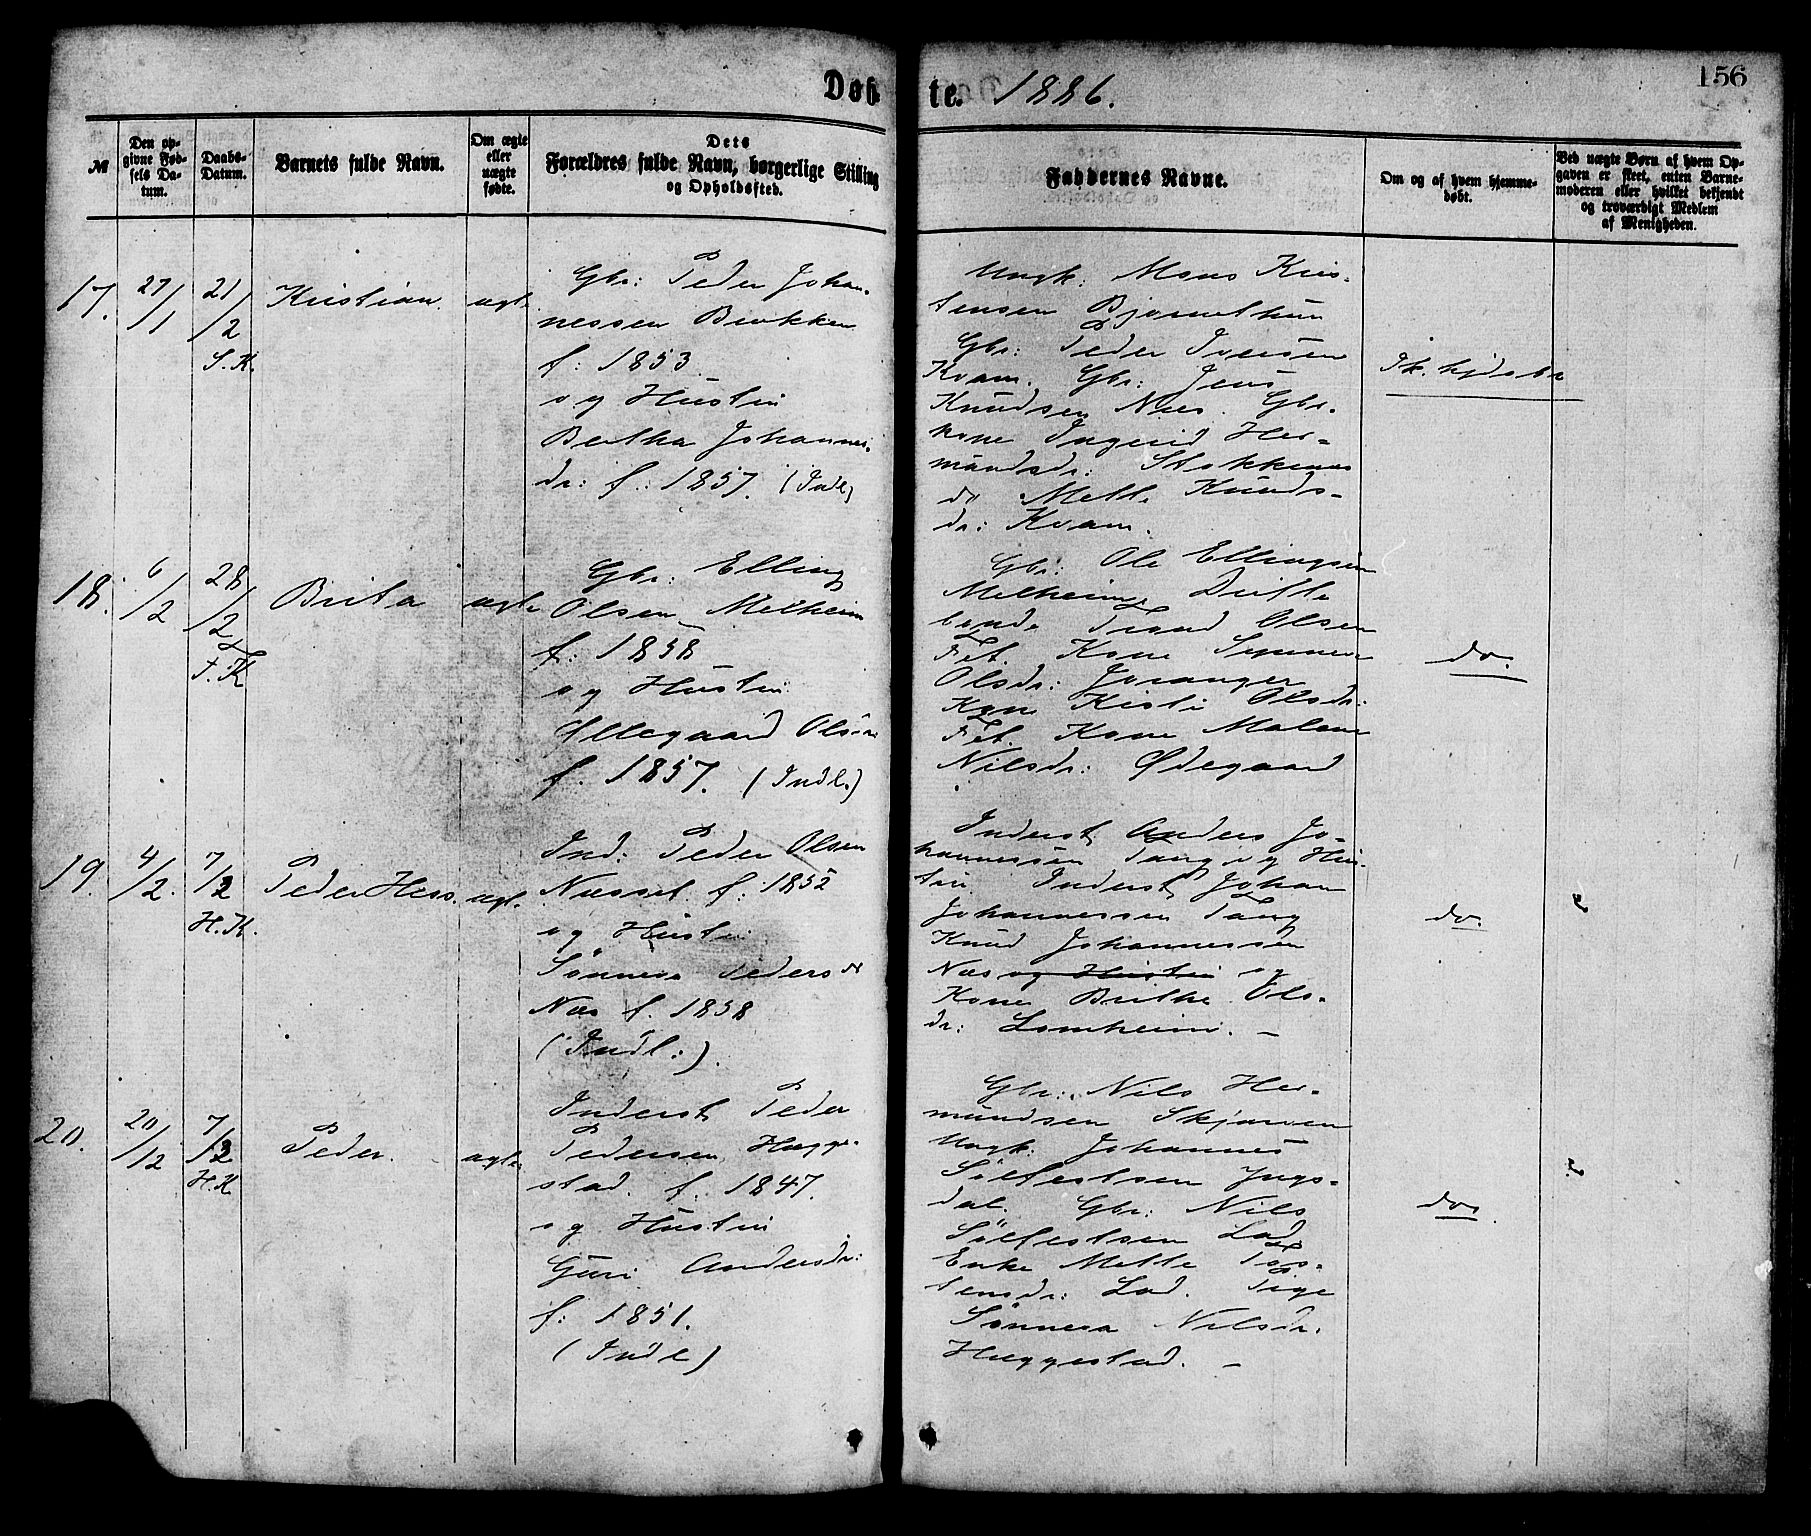 Døb
te. 1886.
156
№
Den op-
givne Fød-
sels Da-
tum.
Daabs-
Datum.
Barnets fulde Navn.
Om ægte
eller
uægte
fødte.
Dets
Forældres fulde Navn, borgerlige Stilling
og Opholdssted.
Faddernes Navne.
Om og af hvem hjemme-
døbt.
Ved uægte Børn af hvem Op-
gaven er skeet, enten Barne-
moderen eller hvilket bekjendt
og troværdigt Medlem
af Menigheden.
17. 27/1 21/2 S.K. Kristian. ægte
Gbr: Peder Johan-
nessen
f: 1853.
og Hustru
Bertha Johannes-
dr: f: 1857. (Indl)
Ungk: Mons Kris-
tensen
Gbr: Peder Iversen
Kvam. Gbr: Jens
Knudsen Næs. Gbr.
kone Ingerid Her-
mundsdr: Stokkenæs
do Mette Knuds-
dr: Kvam.
Ik. hjdøbt
18. 6/2 28/2 F.K. Brita ægte
Gbr: Elling
Olsen Melheim
f: 1858
og Hustru
Øllegaard Olsdr
f. 1857. (Indl.)
Gbr: Ole Ellingsen
Melheim,
Olsen
Fet. Kone
Olsdr: Joranger
Kone Kisti Olsdr:
Fet. Kone Malene
Nilsdr: Ødegaard
do.
19. 4/2. 7/2 H.K. Peder Hess. ægt.
Ind: Peder Olsen
Næsset f: 1852
og Hustru
Sønneva Pedersdr
Næs f. 1858
(Indl:).
Inderst Anders Jo-
hannessen Tang og Hus-
tru. Inderst Johan
Johannessen Tang
Knud Johannessen
Næs og Hustru og
Kone Brithe Ols-
dr: Lomheim. –
do.
20. 20/12 7/2 H.K Peder. ægte
Inderst Peder
Pedersen Hægge-
stad. f. 1847.
og Hustru
Guri Andersdr:
f: 1851.
(Indl)
Gbr: Nils Her-
mundsen
Ungk. Johannes
Sølfestsen Yngs-
dal. Gbr: Nils
Sølfestsen Lad
Enke Mette Tos-
tensdr: Lad. Pige
Sønneva Nilsdr.
Hæggestad. –
do.